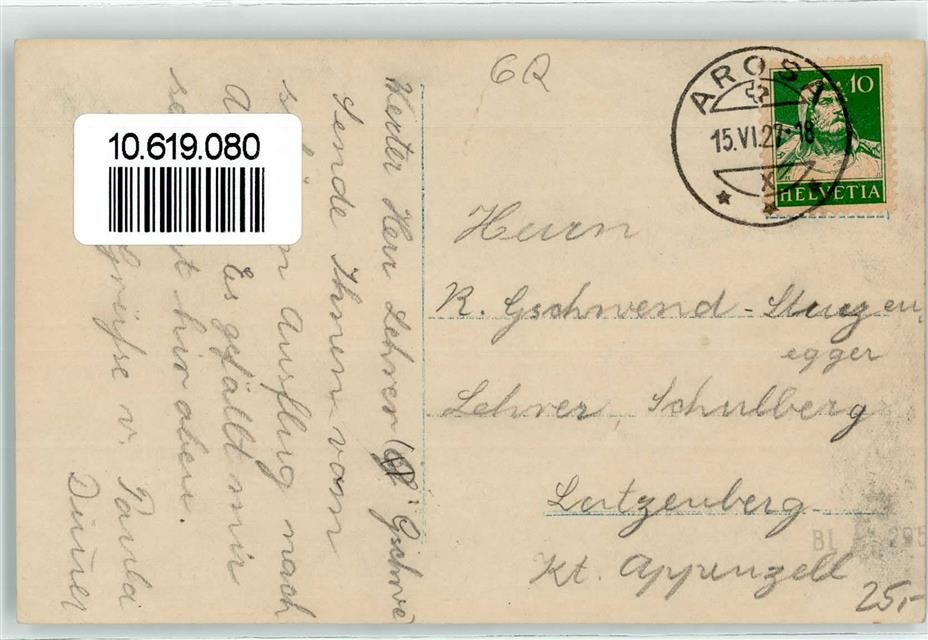 10.619.080
6Q
AROSA
15.VI.27-18
X
10
HELVETIA
Werter Herr Lehrer Gschwe
Sende Ihnen vom
Ausflug nach
A Es gefällt mir
hir oben.
Grüsse v. Paula
Dürrer
Herrn
R. Gschwend-Sturzen
egger
Lehrer, Schulberg
Lutzenberg
Kt. Appenzell
BL 295
25,-